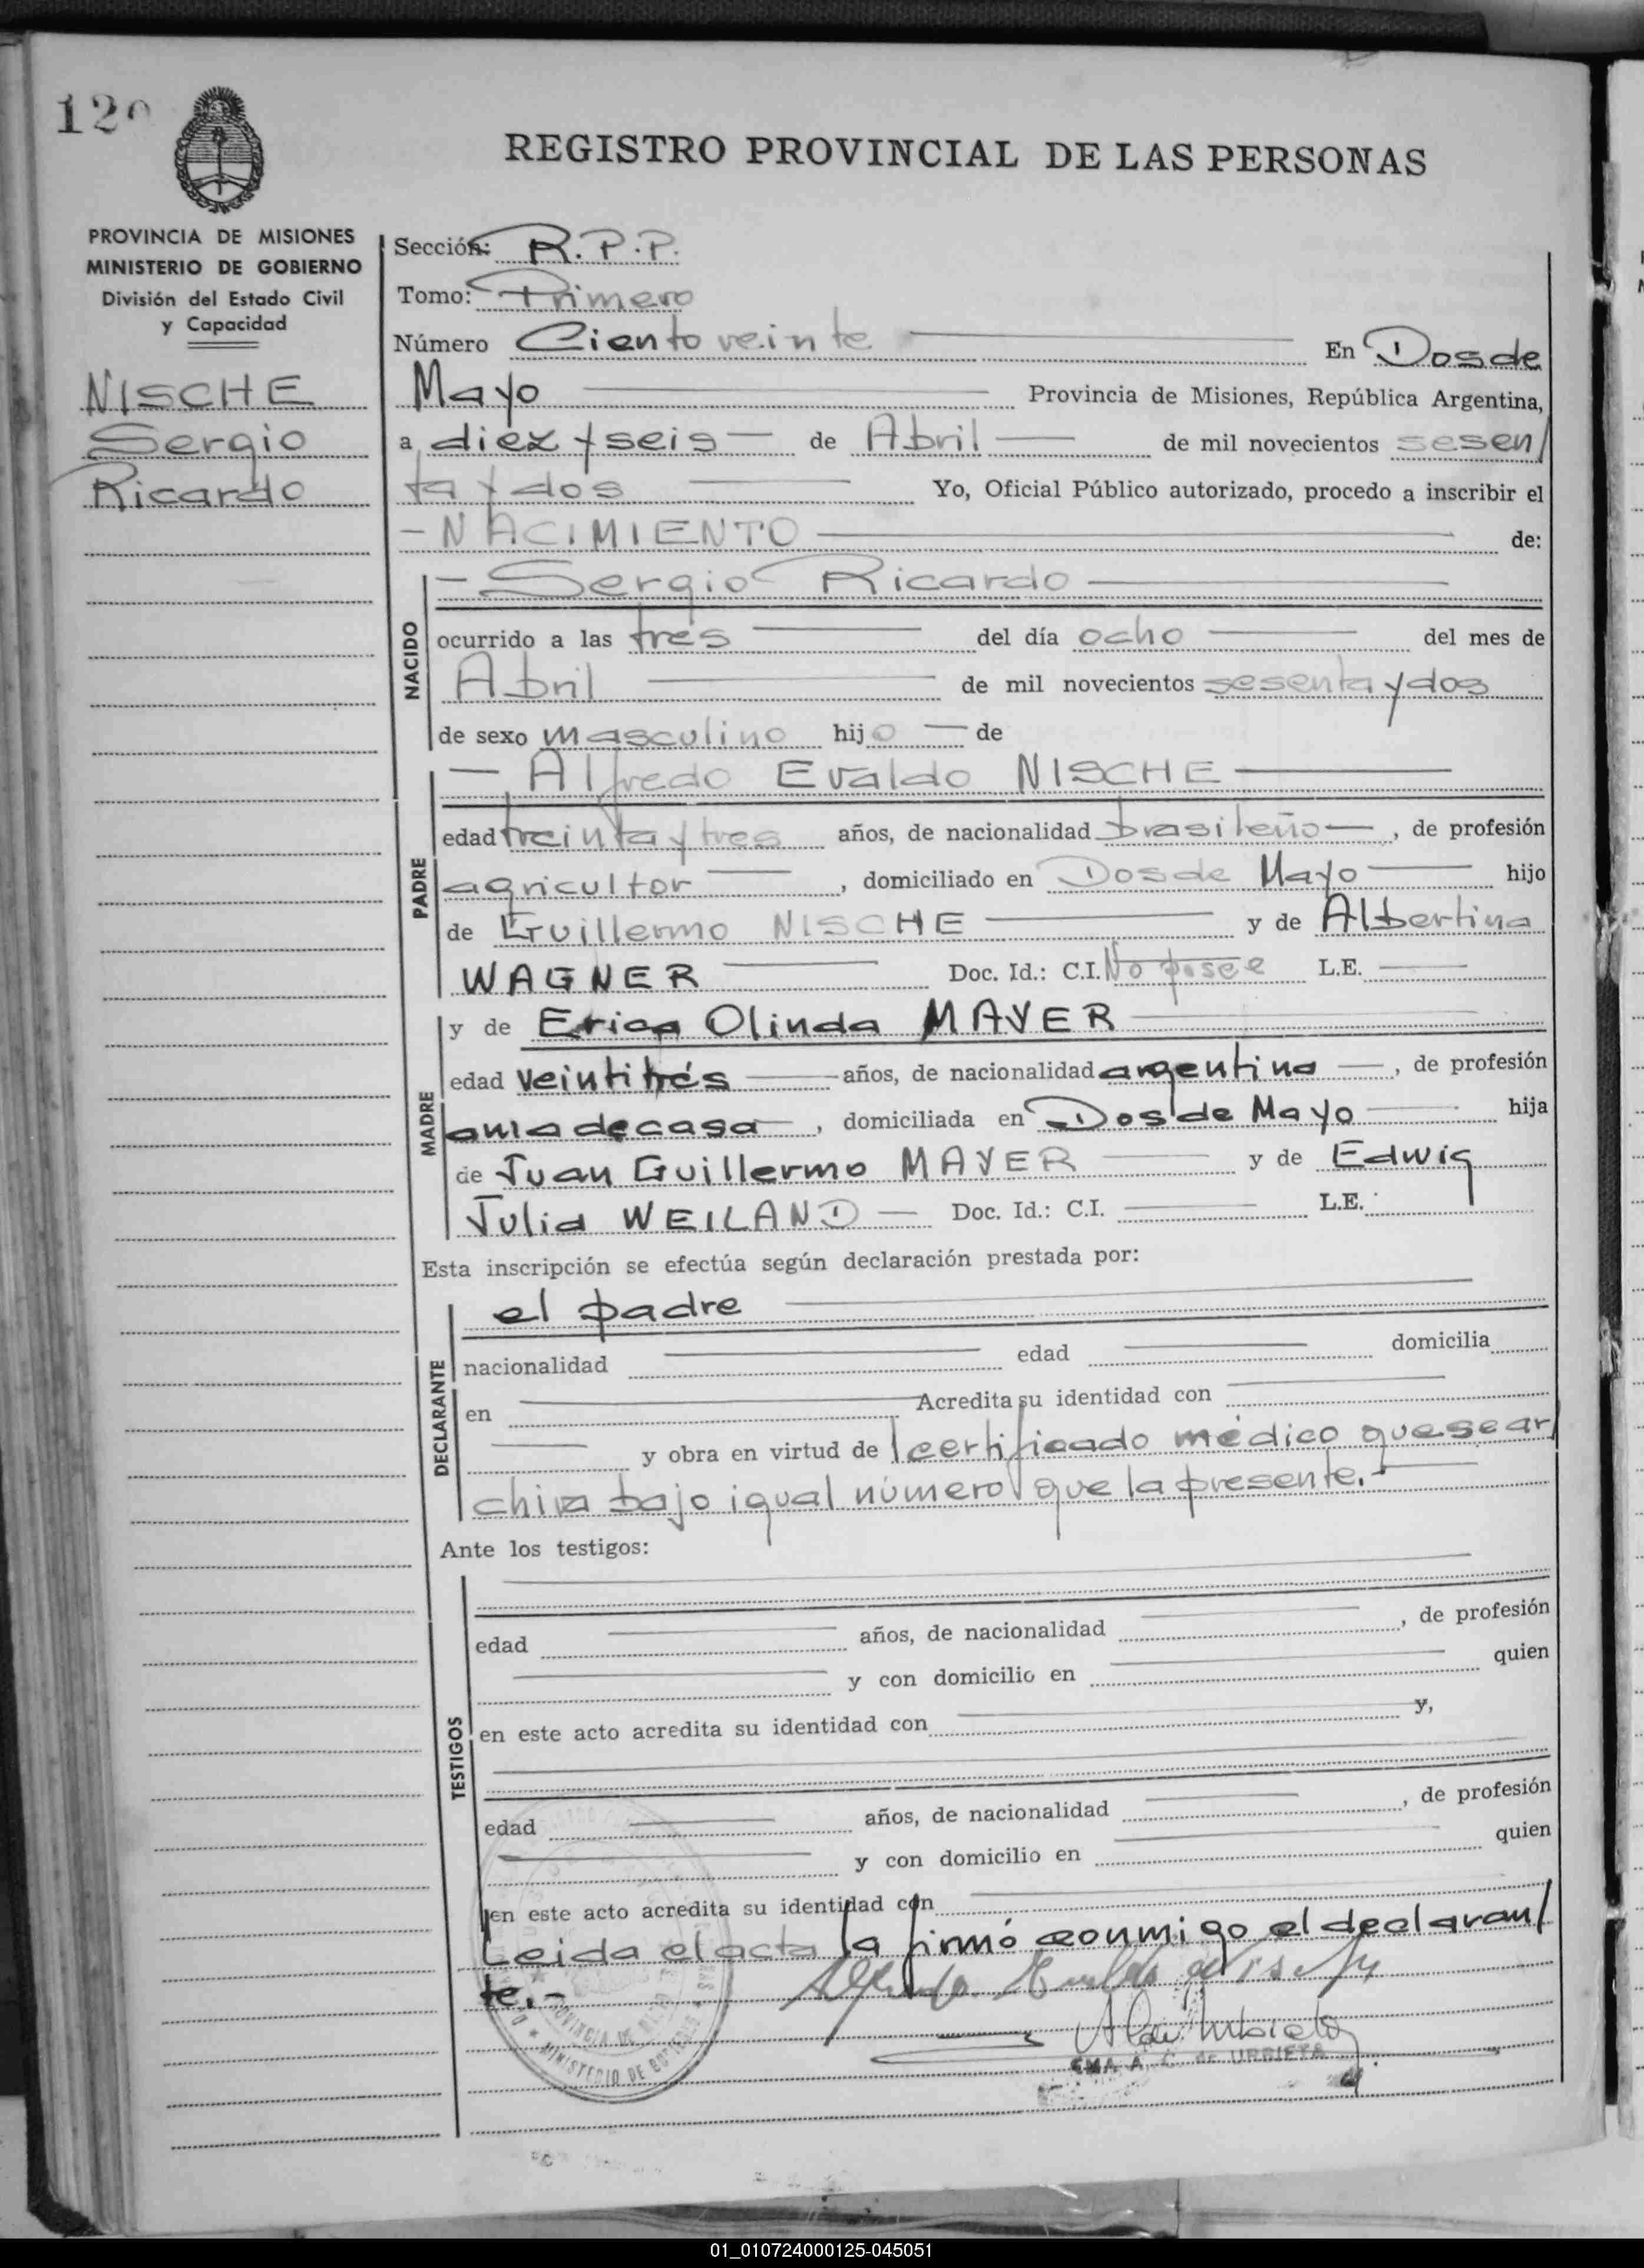 120
REGISTRO PROVINCIAL DE LAS PERSONAS
PROVINCIA DE MISIONES
MINISTERIO DE GOBIERNO
División del Estado Civil
y Capacidad
NISCHE
Sergio
Ricardo
Sección: R.P.P.
Tomo: Primero
Número Ciento veinte En Dos de
Mayo Provincia de Misiones, República Argentina,
a diez y seis de Abril de mil novecientos sesen/
ta y dos Yo, Oficial Público autorizado, procedo a inscribir el
- NACIMIENTO de:
NACIDO
- Sergio Ricardo
ocurrido a las tres del día ocho del mes de
Abril de mil novecientos sesenta y dos
de sexo masculino hijo de
PADRE
- Alfredo Evaldo NISCHE
edad treinta y tres años, de nacionalidad brasileño, de profesión
agricultor, domiciliado en Dos de Mayo hijo
de Guillermo NISCHE y de Albertina
WAGNER Doc. Id.: C.I. No posee L.E.
MADRE
y de Erica Olinda MAYER
edad veintitrés años, de nacionalidad argentina, de profesión
ama de casa, domiciliada en Dos de Mayo hija
de Juan Guillermo MAYER y de Edwig
Julia WEILAND Doc. Id.: C.I. L.E.
Esta inscripción se efectúa según declaración prestada por:
DECLARANTE
el padre
nacionalidad edad domicilia
en Acredita su identidad con
y obra en virtud de certificado médico que se ar/
chiva bajo igual número que la presente.-
Ante los testigos:
TESTIGOS
edad años, de nacionalidad , de profesión
y con domicilio en quien
en este acto acredita su identidad con y,
edad años, de nacionalidad , de profesión
y con domicilio en quien
en este acto acredita su identidad con
Leida el acta la firmó conmigo el declaran/
te.-
PROVINCIA DE
MINISTERIO DE GOBIERNO
de URBIETA
01_010724000125-045051